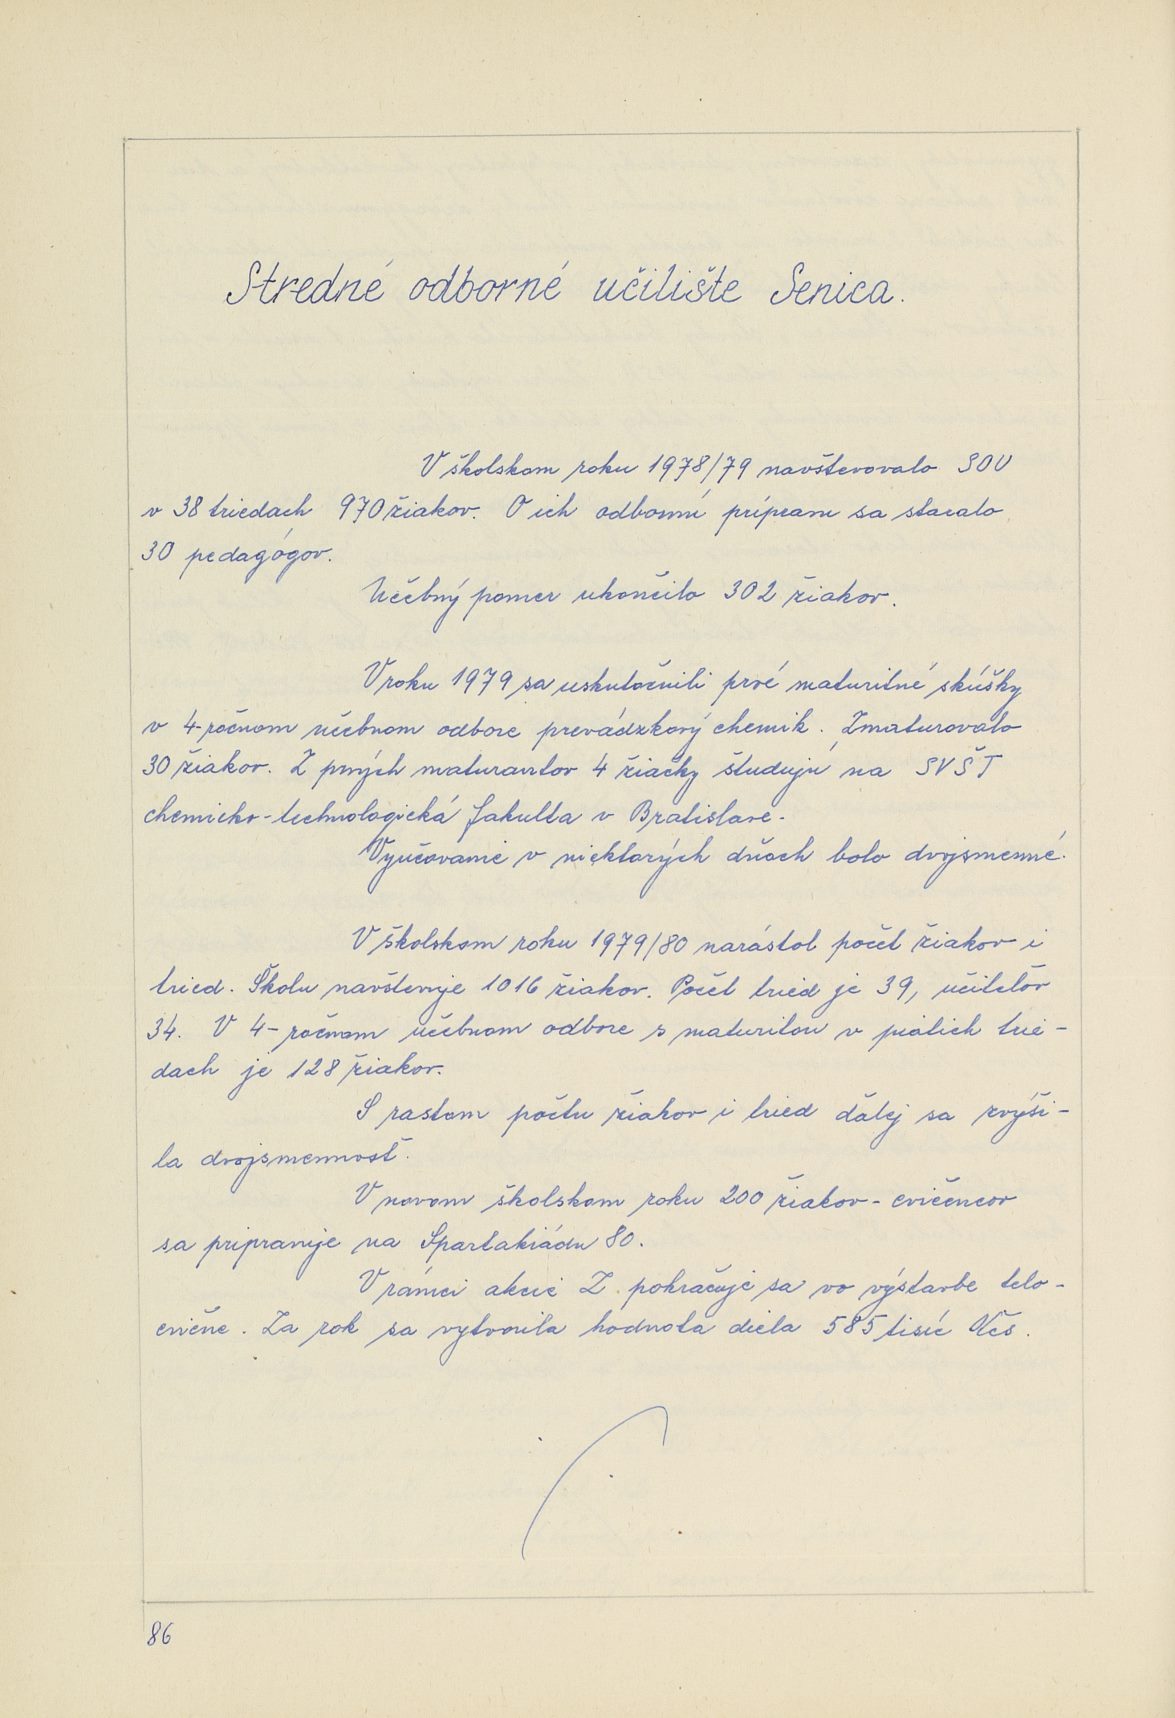 Stredné odborné učilište Senica.
V školskom roku 1978/79 navštevovalo SOU
v 38 triedach 970 žiakov. O ich odbornú prípravu sa staralo
30 pedagógov.
Učebný pomer ukončilo 302 žiakov.
V roku 1979 sa uskutočnili prvé maturitné skúšky
v 4-ročnom učebnom odbore prevádzkový chemik. Zmaturovalo
30 žiakov. Z prvých maturantov 4 žiačky študujú na SVŠT
chemicko-technologická fakulta v Bratislave.
Vyučovanie v niektorých dňoch bolo dvojsmenné.
V školskom roku 1979/80 narástol počet žiakov i
tried. Školu navštevuje 1016 žiakov. Počet tried je 39, učiteľov
34. V 4-ročnom učebnom odbore s maturitou v piatich trie-
dach je 128 žiakov.
S rastom počtu žiakov i tried ďalej sa zvýši-
la dvojsmennosť.
V novom školskom roku 200 žiakov - cvičencov
sa pripravuje na Spartakiádu 80.
V rámci akcie Z pokračuje sa vo výstavbe telo-
cvične. Za rok sa vytvorila hodnota diela 585 tisíc Kčs.
86